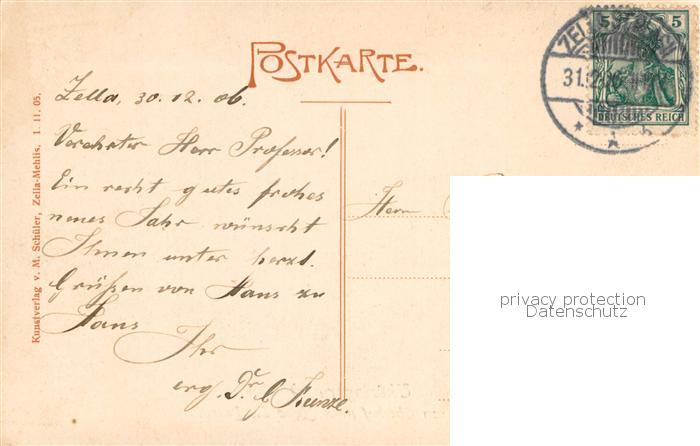 POSTKARTE.
Zella, 30.12.06.
Verehrter Herr Professor!
Ein recht gutes frohes
neues Jahr wünscht
Ihnen unter herzl.
Grüßen von Haus zu
Haus
Ihr
erg. Dr. G Kunze.
Herrn
Kunstverlag v. M. Schüler, Zella-Mehlis. 1. 11. 05.
5 5
DEUTSCHES REICH
ZELLA
31.12.06
privacy protection
Datenschutz